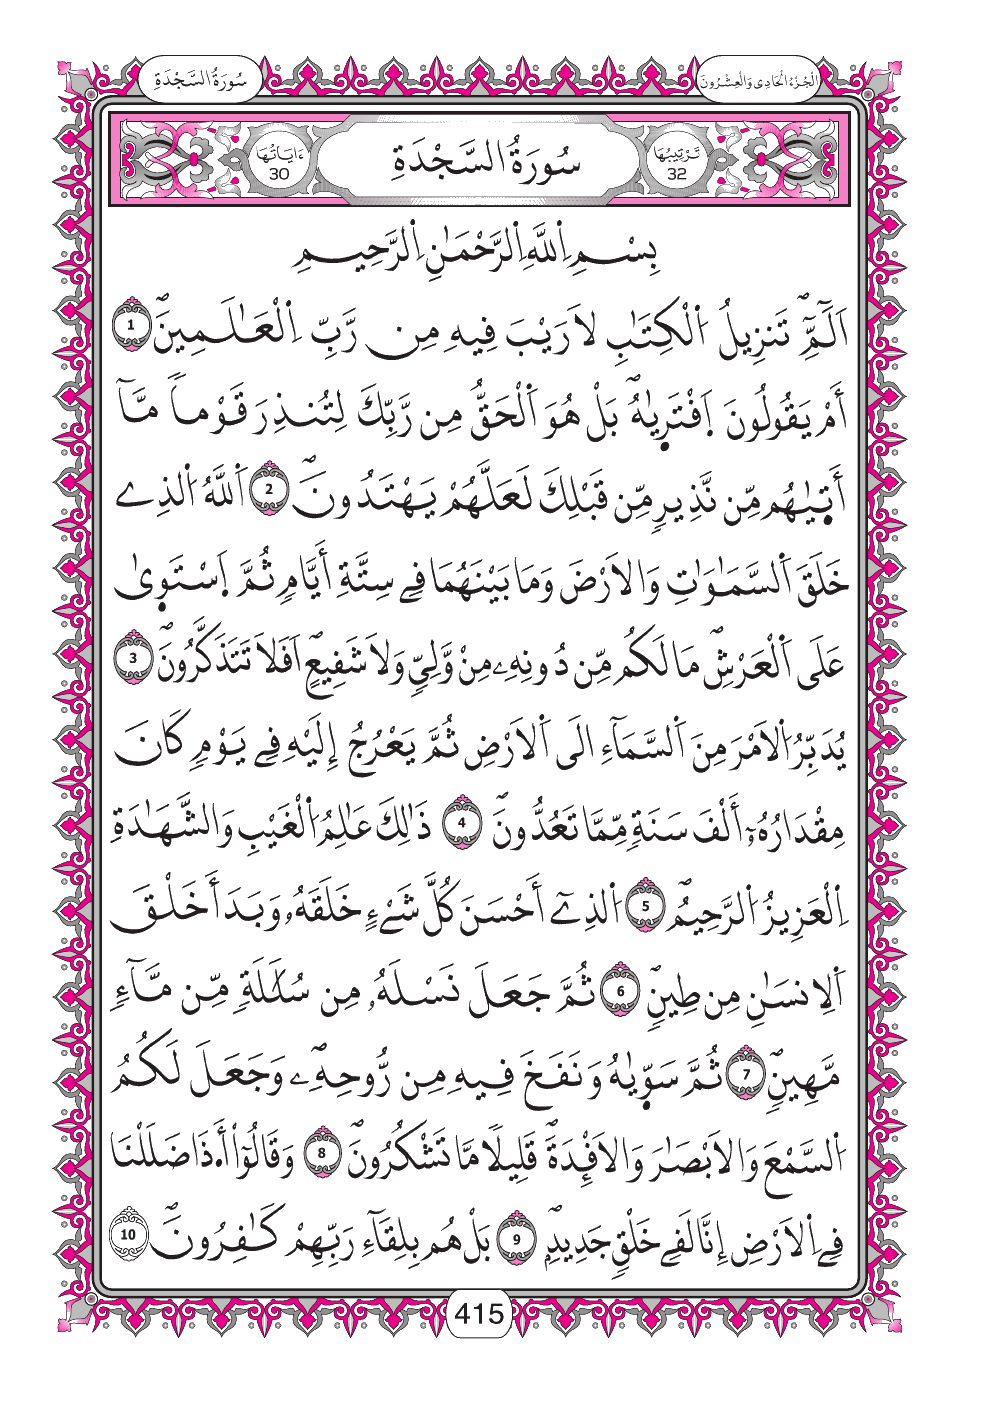 سُورَةُ السَّجْدَةِ
الْجُزْءُ الْحَادِي وَالْعِشْرُونَ
ءَايَاتُهَا 30
سُورَةُ السَّجْدَةِ
تَرْتِيبُهَا 32
بِسْمِ اِللَّهِ اِلرَّحْمَٰنِ اِلرَّحِيمِ
اَلَٓمِّٓۖ تَنزِيلُ اُلْكِتَٰبِ لَا رَيْبَ فِيهِ مِن رَّبِّ اِلْعَٰلَمِينَۖ 1
أَمْ يَقُولُونَ اَفْتَر۪يٰهُۖ بَلْ هُوَ اَلْحَقُّ مِن رَّبِّكَ لِتُنذِرَ قَوْماٗ مَّآ
أَت۪يٰهُم مِّن نَّذِيرٖ مِّن قَبْلِكَ لَعَلَّهُمْ يَهْتَدُونَۖ 2 اَللَّهُ اُلذِے
خَلَقَ اَلسَّمَٰوَٰتِ وَالَارْضَ وَمَا بَيْنَهُمَا فِے سِتَّةِ أَيَّامٖ ثُمَّ اَسْتَو۪يٰ
عَلَى اَلْعَرْشِۖ مَا لَكُم مِّن دُونِهِۦ مِنْ وَّلِيّٖ وَلَا شَفِيعٍۖ اَفَلَا تَتَذَكَّرُونَۖ 3
يُدَبِّرُ اُلَامْرَ مِنَ اَلسَّمَآءِ اِلَى اَلَارْضِ ثُمَّ يَعْرُجُ إِلَيْهِ فِے يَوْمٖ كَانَ
مِقْدَارُهُۥٓ أَلْفَ سَنَةٖ مِّمَّا تَعُدُّونَۖ 4 ذَٰلِكَ عَٰلِمُ اُلْغَيْبِ وَالشَّهَٰدَةِ
اِلْعَزِيزُ اُلرَّحِيمُۖ 5 اُلذِےٓ أَحْسَنَ كُلَّ شَےْءٍ خَلَقَهُۥ وَبَدَأَ خَلْقَ
اَلِانسَٰنِ مِن طِينٖۖ 6 ثُمَّ جَعَلَ نَسْلَهُۥ مِن سُلَٰلَةٖ مِّن مَّآءٖ
مَّهِينٖۖ 7 ثُمَّ سَوّ۪يٰهُ وَنَفَخَ فِيهِ مِن رُّوحِهِۦۖ وَجَعَلَ لَكُمُ
اُلسَّمْعَ وَالَابْصَٰرَ وَالَافْـِٕدَةَۖ قَلِيلاٗ مَّا تَشْكُرُونَۖ 8 وَقَالُوٓاْ أَ۟ذَا ضَلَلْنَا
فِے اِلَارْضِ إِنَّا لَفِے خَلْقٖ جَدِيدِۖ 9 بَلْ هُم بِلِقَآءِ رَبِّهِمْ كَٰفِرُونَۖ 10
415